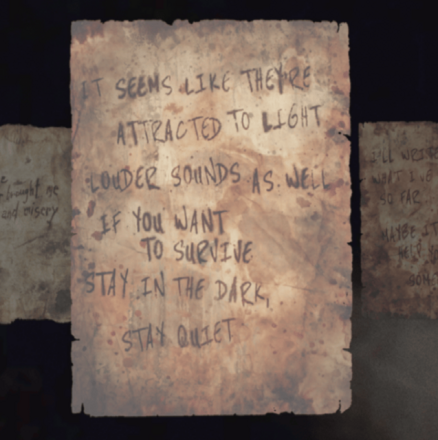 IT SEEMS LIKE THEY'RE
ATTRACTED TO LIGHT
LOUDER SOUNDS AS WELL
IF YOU WANT
TO SURVIVE
STAY IN THE DARK,
STAY QUIET
me
and misery
I'LL WRITE
SO FAR
MAYBE IT